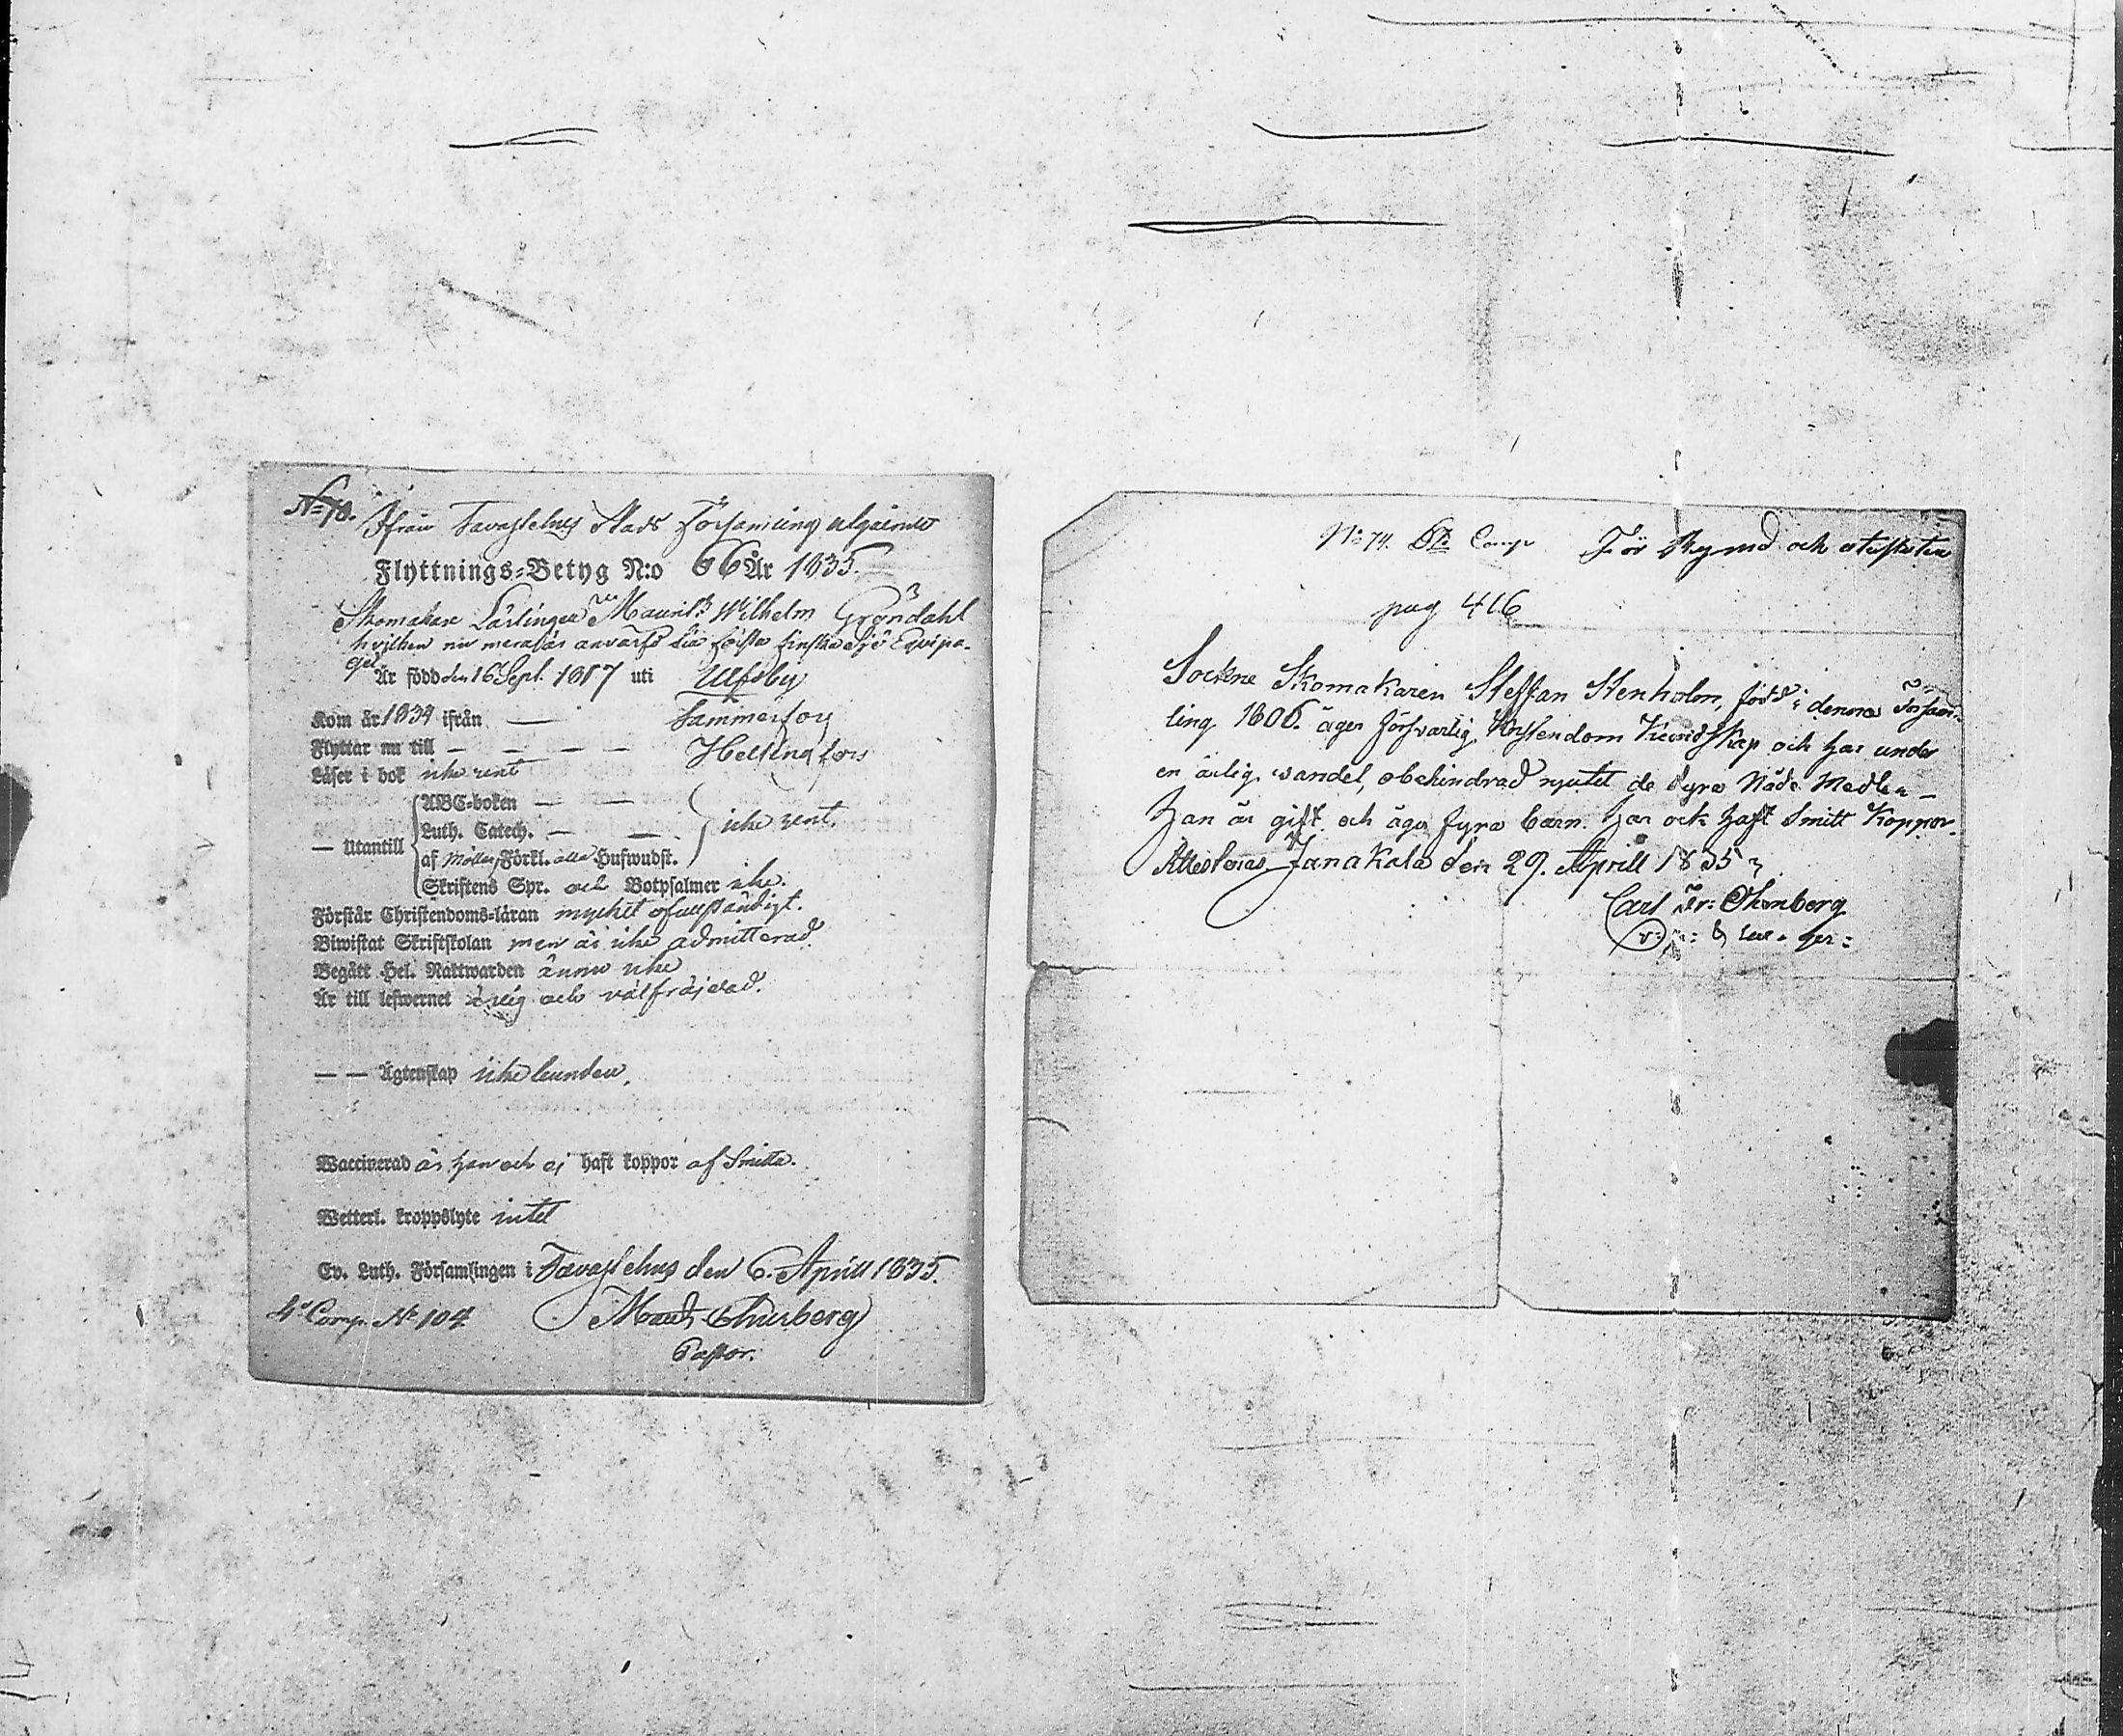 N:o 70.
Ifrån Tavastehus Stads Församling utgående
Flyttnings-Betyg N:o 66 År 1835.
Skomakare Lärlingen Maurits Wilhelm Gröndahl
hvilken nu mera är anvärfd till första finska Sjö Equipa-
get
Är född den 16 Sept. 1817 uti Ulfsby
Kom år 1834 ifrån — Tammerfors
Flyttar nu till — — — — Helsingfors
Läser i bok icke rent
— Utantill
ABC-boken — —
Luth. Catech. — —
af Möllers Förkl. alla Hufwudst.
icke rent.
Skriftens Spr. och Botpsalmer icke.
Förstår Christendoms-läran mycket ofullständigt.
Biwistat Skriftskolan men är icke admitterad.
Begått Hel. Nattwarden ännu icke
Är till lefwernet och välfräjdad.
— — Ägtenskap icke bunden.
Waccinerad är han och ej haft koppor af Smitta.
Wetterl. kroppslyte intet
Ev. Luth. Församlingen i Tavastehus den 6. Aprill 1835.
4de Comp. N:o 104
Maur. Thurberg
Pastor.
N:o 74. 6te Comp För Rymd och
pag 416
Sockne Skomakaren Steffan Stenholm, född i denna Försam-
ling 1806. äger försvarlig Kristendoms Kundskap och har under
en ärlig vandel, obehindrad njutit de dyra Nåde Medlen –
Han är gift och äger fyra barn. har ock haft Smitt Koppor.
Attesteras Janakala den 29. Aprill 1835
Carl Fr: